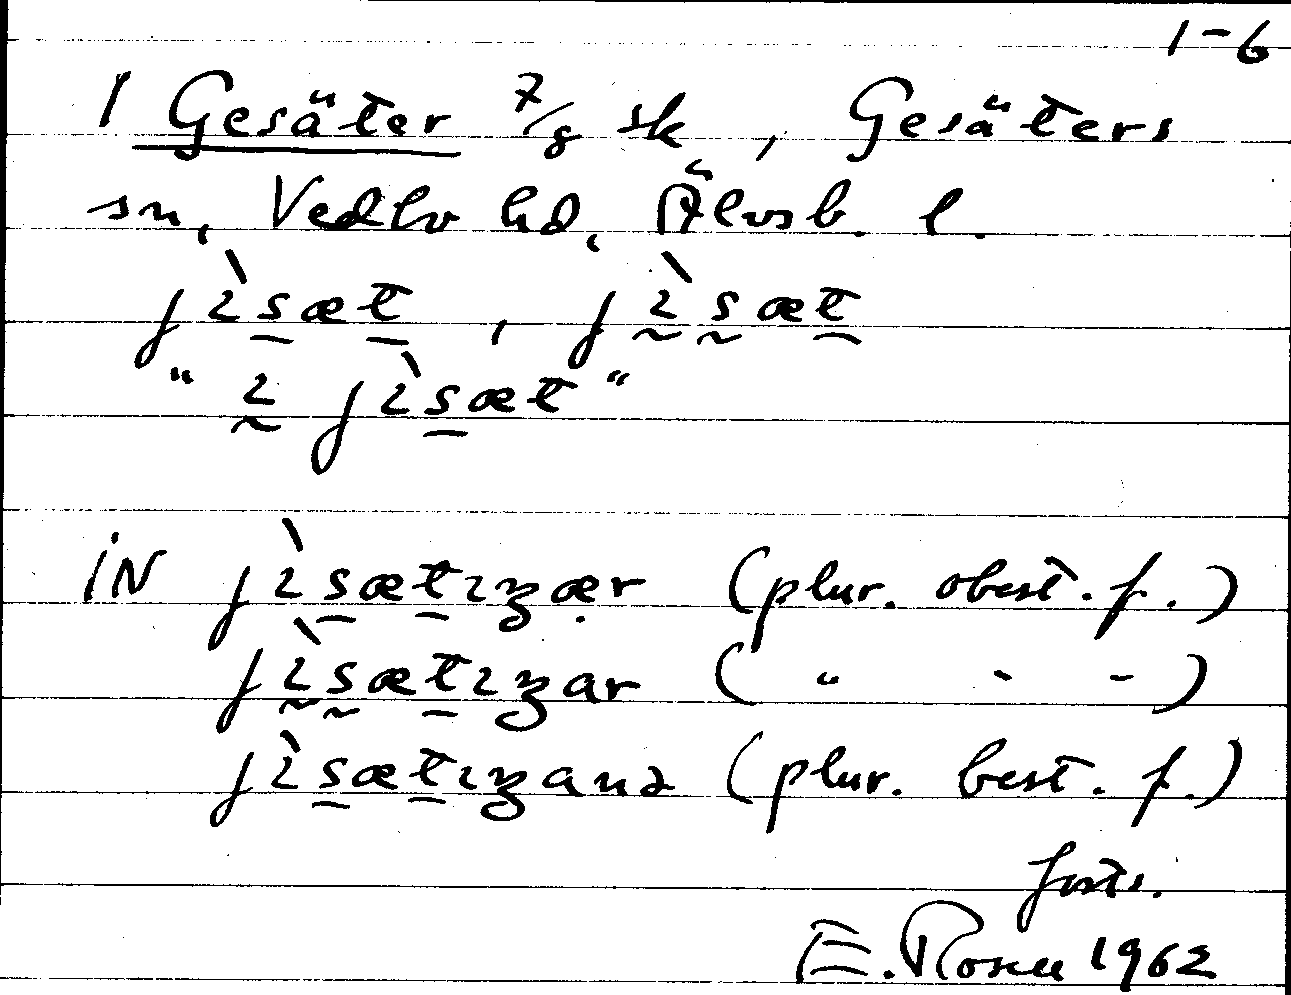 1-6
1 Gesäter 7/8 sk, Gesäters
sn, Vedbo hd, Älvsb. l.
jɩ̀sæt, jɩ̀sæt
" ɩ jɩ̀sæt "
iN jɩ̀sætɩŋær (plur. obest. f.)
jɩ̀sætɩŋar ( " - - )
jɩ̀sætɩŋanə (plur. best. f.)
forts.
E. Rosell 1962